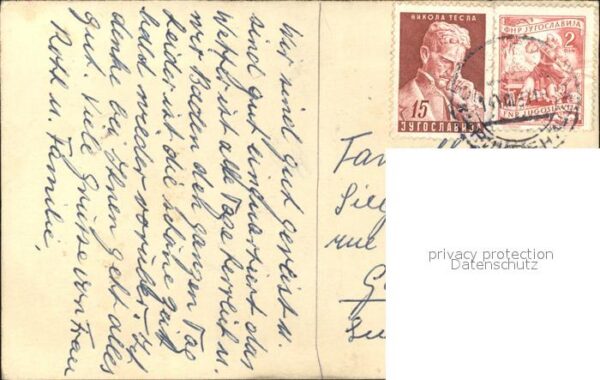 Wir sind gut gereist u.
sind gut einquartiert das
Wetter ist alle Tage herrlich u.
wir Baden den ganzen Tag
leider ist die schöne Zeit
bald wieder vorüber. Ich
denke bei Ihnen geht alles
gut. Viele Grüsse von Frau
Roth u. Familie,
НИКОЛА ТЕСЛА
15
ЈУГОСЛАВИЈА
ФНР ЈУГОСЛАВИЈА
2
FNR JUGOSLAVIJA
Fam
rue
privacy protection
Datenschutz